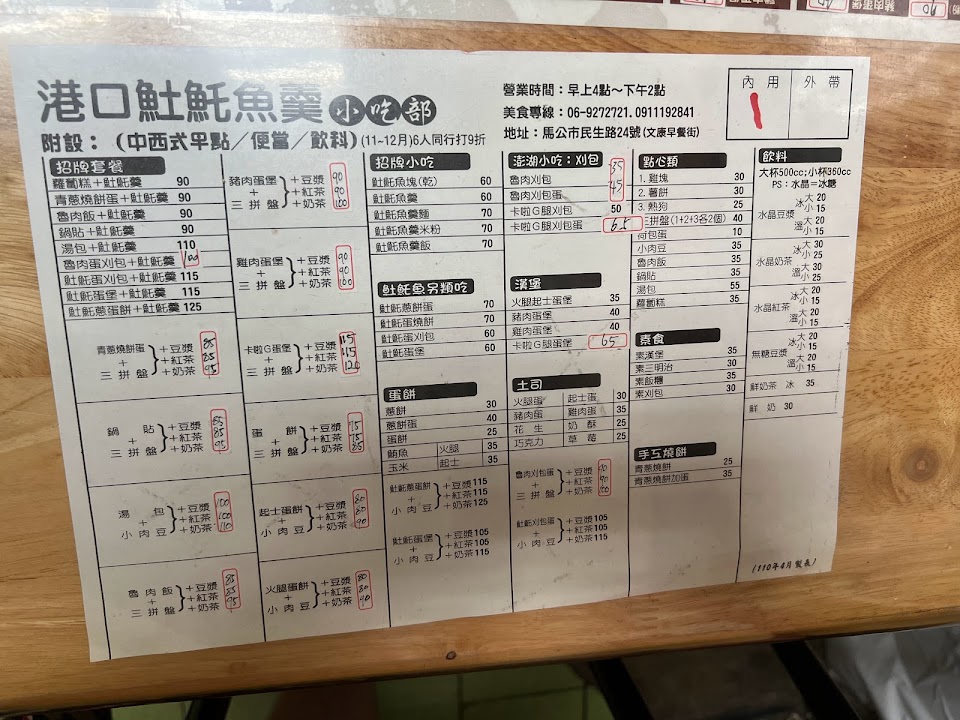 港口䰾魠魚羹 小吃部
附設：（中西式早點／便當／飲料）(11~12月)6人同行打9折
營業時間：早上4點～下午2點
美食專線：06-9272721. 0911192841
地址：馬公市民生路24號(文康早餐街)
內用 外帶
招牌套餐
蘿蔔糕＋魠魠羹 90
青蔥燒餅蛋＋魠魠羹 90
魯肉飯＋魠魠羹 90
鍋貼＋魠魠羹 90
湯包＋魠魠羹 110
魯肉蛋刈包＋魠魠羹 100
魠魠蛋刈包＋魠魠羹 115
魠魠蛋堡＋魠魠羹 115
魠魠蔥餅蛋＋魠魠羹 125
青蔥燒餅蛋 ＋ 三拼盤
＋豆漿 85
＋紅茶 85
＋奶茶 95
鍋貼 ＋ 三拼盤
＋豆漿 85
＋紅茶 85
＋奶茶 95
湯包 ＋ 小肉豆
＋豆漿 100
＋紅茶 100
＋奶茶 110
魯肉飯 ＋ 三拼盤
＋豆漿 85
＋紅茶 85
＋奶茶 95
豬肉蛋堡 ＋ 三拼盤
＋豆漿 90
＋紅茶 90
＋奶茶 100
雞肉蛋堡 ＋ 三拼盤
＋豆漿 90
＋紅茶 90
＋奶茶 100
卡啦G蛋堡 ＋ 三拼盤
＋豆漿 115
＋紅茶 115
＋奶茶 120
蛋餅 ＋ 三拼盤
＋豆漿 75
＋紅茶 75
＋奶茶 85
起士蛋餅 ＋ 小肉豆
＋豆漿 80
＋紅茶 80
＋奶茶 90
火腿蛋餅 ＋ 小肉豆
＋豆漿 80
＋紅茶 80
＋奶茶 90
招牌小吃
魠魠魚塊(乾) 60
魠魠魚羹 60
魠魠魚羹麵 70
魠魠魚羹米粉 70
魠魠魚羹飯 70
魠魠魚另類吃
魠魠蔥餅蛋 70
魠魠蛋燒餅 70
魠魠蛋刈包 60
魠魠蛋堡 60
蛋餅
蔥餅 30
蔥餅蛋 40
蛋餅 25
鮪魚 火腿 35
玉米 起士 35
魠魠蔥蛋餅 ＋ 小肉豆
＋豆漿 115
＋紅茶 115
＋奶茶 125
魠魠蛋堡 ＋ 小肉豆
＋豆漿 105
＋紅茶 105
＋奶茶 115
澎湖小吃：刈包
魯肉刈包 35
魯肉刈包蛋 45
卡啦G腿刈包 50
卡啦G腿刈包蛋 65
漢堡
火腿起士蛋堡 35
豬肉蛋堡 40
雞肉蛋堡 40
卡啦G腿蛋堡 65
土司
火腿蛋 起士蛋 30
豬肉蛋 雞肉蛋 35
花生 奶酥 25
巧克力 草莓 25
魯肉刈包蛋 ＋ 三拼盤
＋豆漿 90
＋紅茶 90
＋奶茶 100
魠魠刈包蛋 ＋ 小肉豆
＋豆漿 105
＋紅茶 105
＋奶茶 115
點心類
1. 雞塊 30
2. 薯餅 30
3. 熱狗 25
三拼盤(1+2+3各2個) 40
荷包蛋 10
小肉豆 35
魯肉飯 35
鍋貼 35
湯包 55
蘿蔔糕 35
素食
素漢堡 35
素三明治 30
素飯糰 35
素刈包 30
手工燒餅
青蔥燒餅 25
青蔥燒餅加蛋 35
飲料
大杯500cc;小杯360cc
PS：水晶＝冰糖
水晶豆漿 冰 大 20 小 15 溫 大 20 小 15
水晶奶茶 冰 大 30 小 25 溫 大 30 小 25
水晶紅茶 冰 大 20 小 15 溫 大 20 小 15
無糖豆漿 冰 大 20 小 15 溫 大 20 小 15
鮮奶茶 冰 35
鮮奶 30
(110年4月製表)